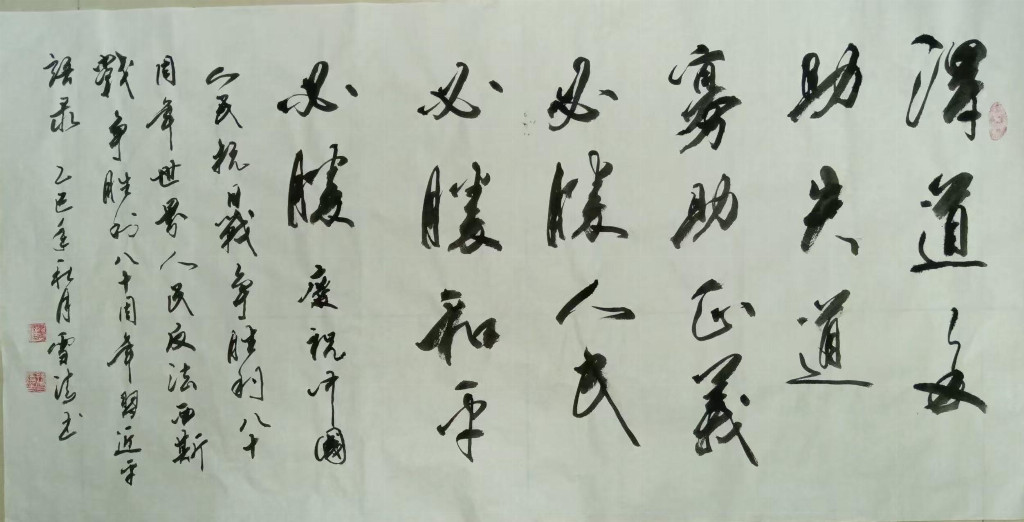 得道多
助失道
寡助正義
必勝人民
必勝和平
必勝 慶祝中國
人民抗日戰爭胜利八十
周年世界人民反法西斯
戰争胜利八十周年習近平
語录 乙巳年秋月雪